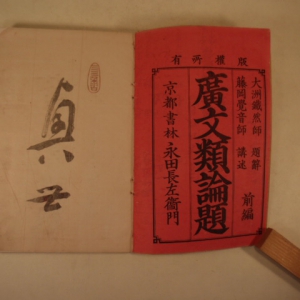 版權所有
大洲鐵然師 題辭
藤岡覺音師 講述
廣文類論題
前編
京都書林 永田長左衞門